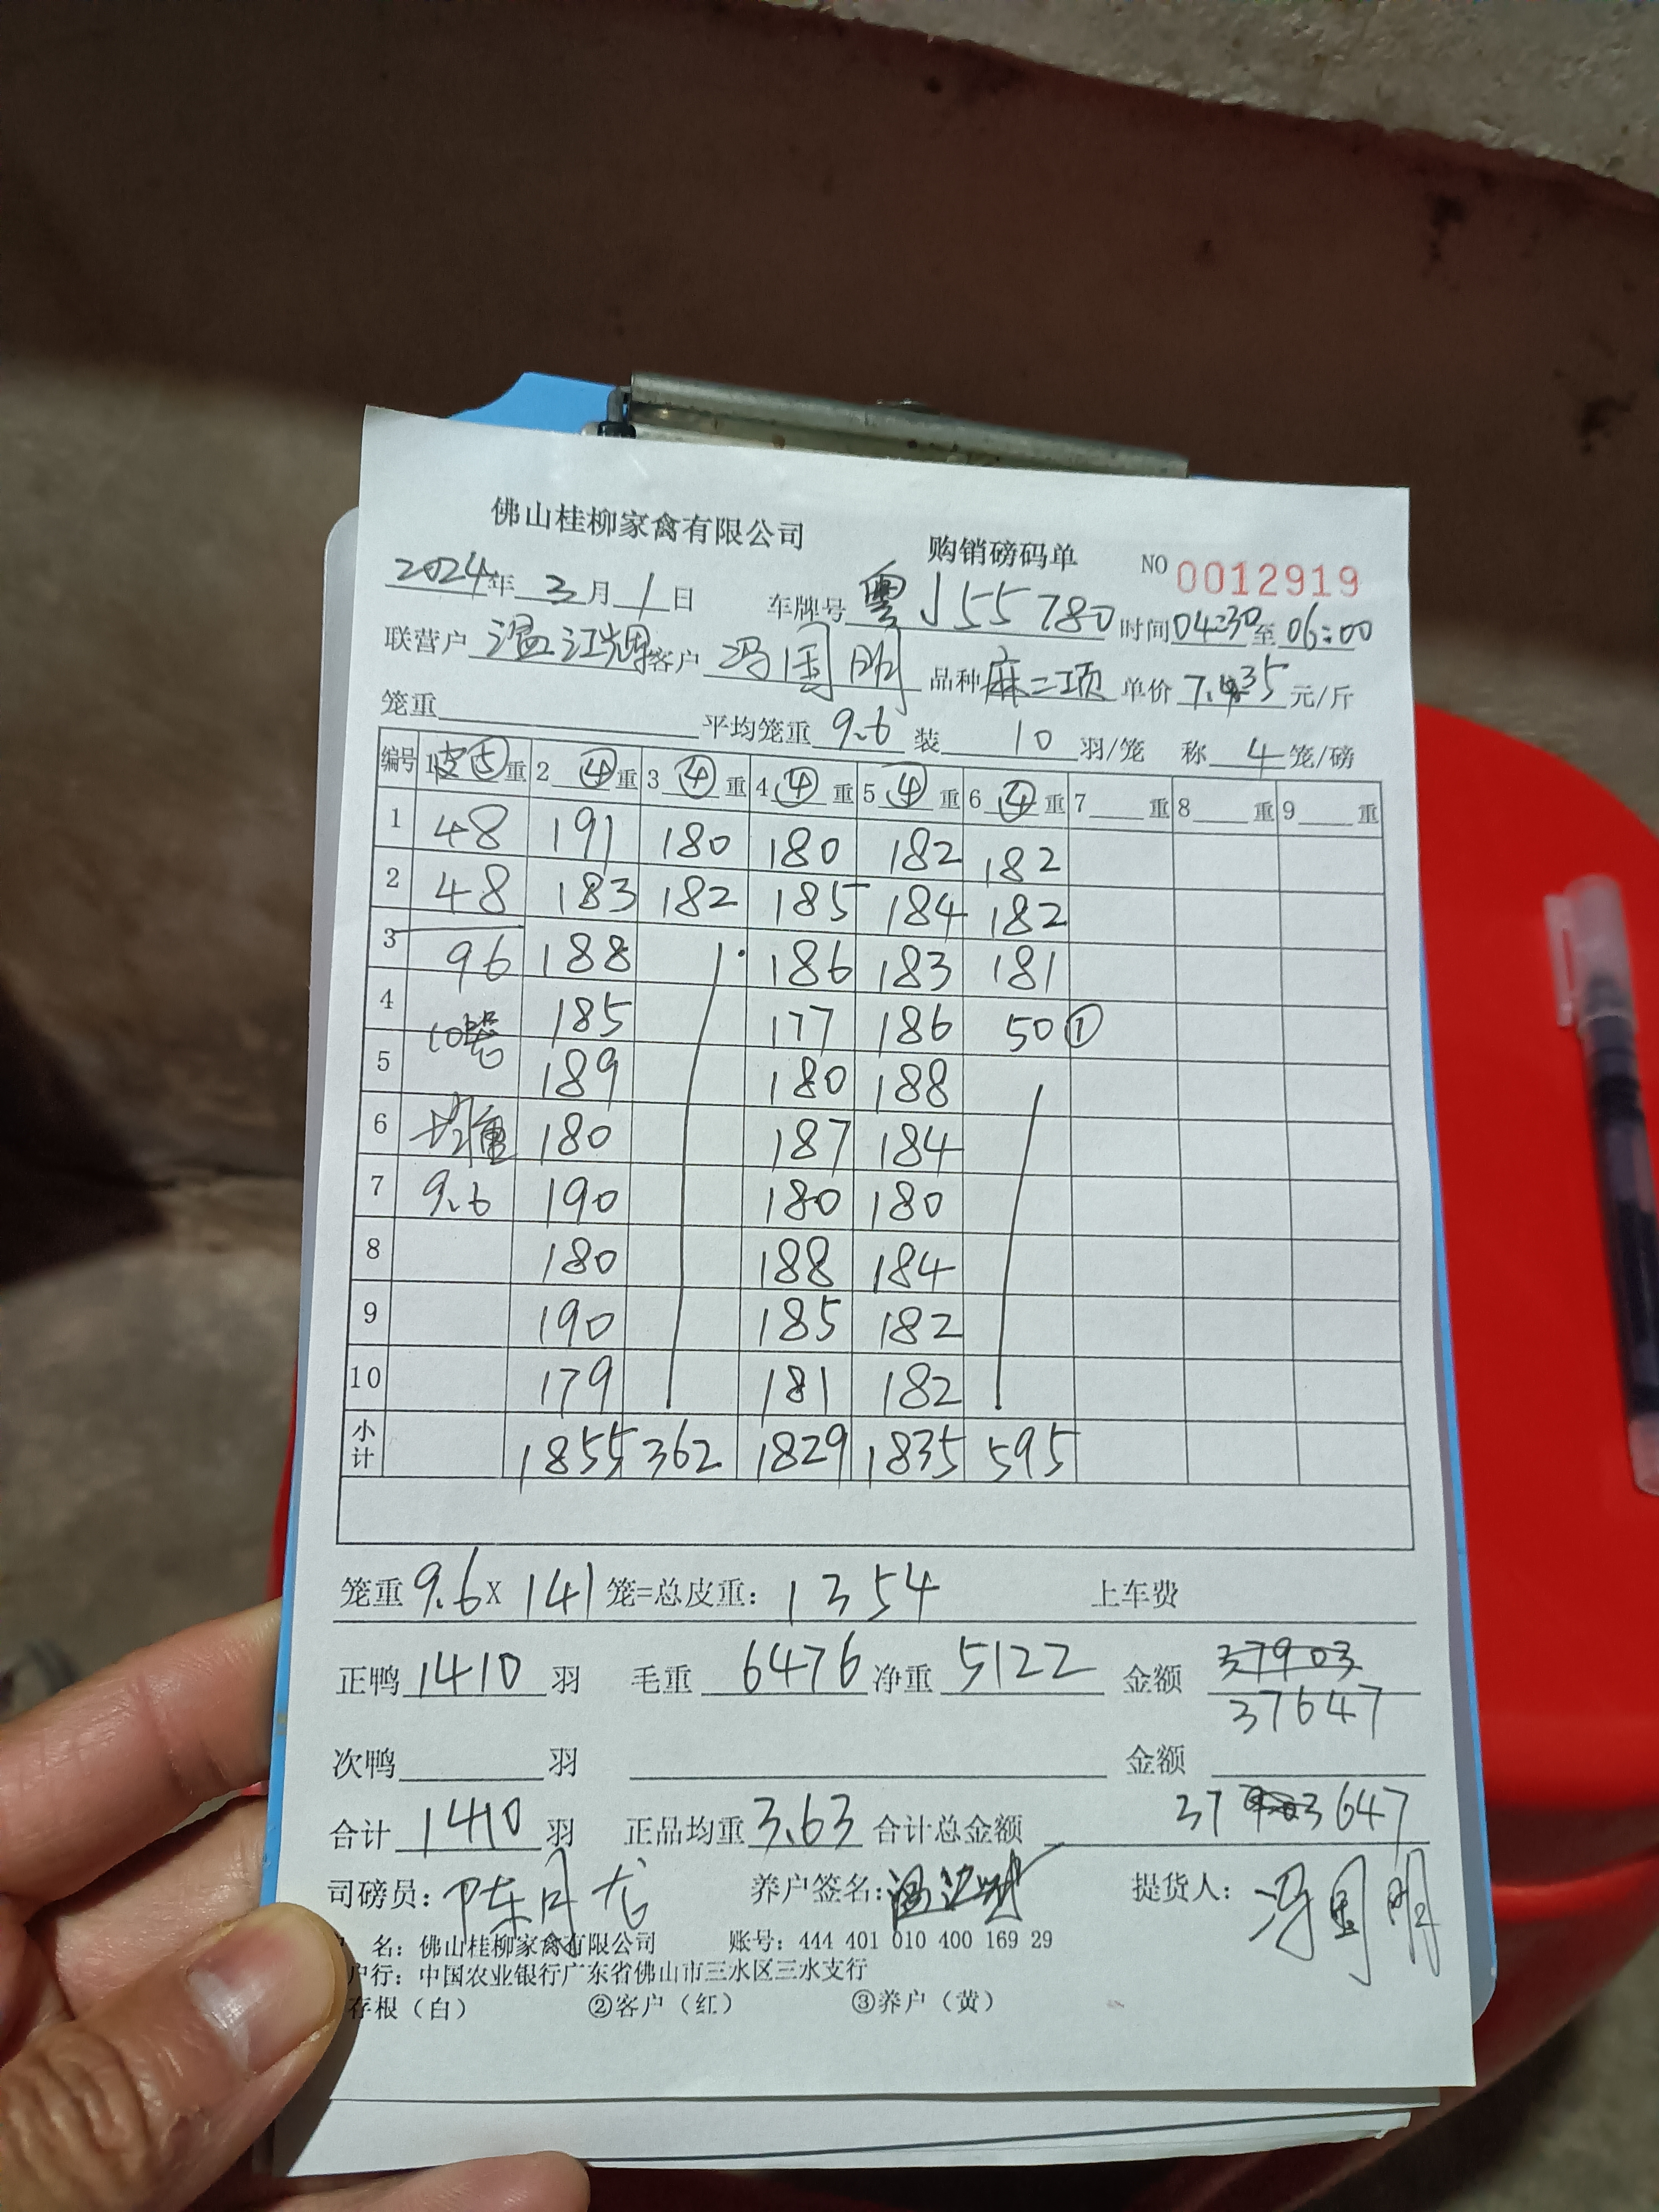 佛山桂柳家禽有限公司 购销磅码单 NO 0012919
2024年 3月 1日 车牌号 粤J55780 时间 04:30 至 06:00
联营户 温江辉 客户 冯国明 品种 麻二项 单价 7.35 元/斤
笼重 平均笼重 9.6 装 10 羽/笼 称 4 笼/磅
编号 1 皮⑤ 重 2 ④ 重 3 ④ 重 4 ④ 重 5 ④ 重 6 ④ 重 7 重 8 重 9 重
1 48 191 180 180 182 182
2 48 183 182 185 184 182
3 96 188 186 183 181
4 10笼 185 177 186 50①
5 189 180 188
6 均重 180 187 184
7 9.6 190 180 180
8 180 188 184
9 190 185 182
10 179 181 182
小计 1855 362 1829 1835 595
笼重 9.6 X 141 笼=总皮重: 1354 上车费
正鸭 1410 羽 毛重 6476 净重 5122 金额 37903
37647
次鸭 羽 金额
合计 1410 羽 正品均重 3.63 合计总金额 37 3647
司磅员: 陈月龙 养户签名: 提货人: 冯国明
名: 佛山桂柳家禽有限公司 账号: 444 401 010 400 169 29
户行: 中国农业银行广东省佛山市三水区三水支行
存根（白） ②客户（红） ③养户（黄）